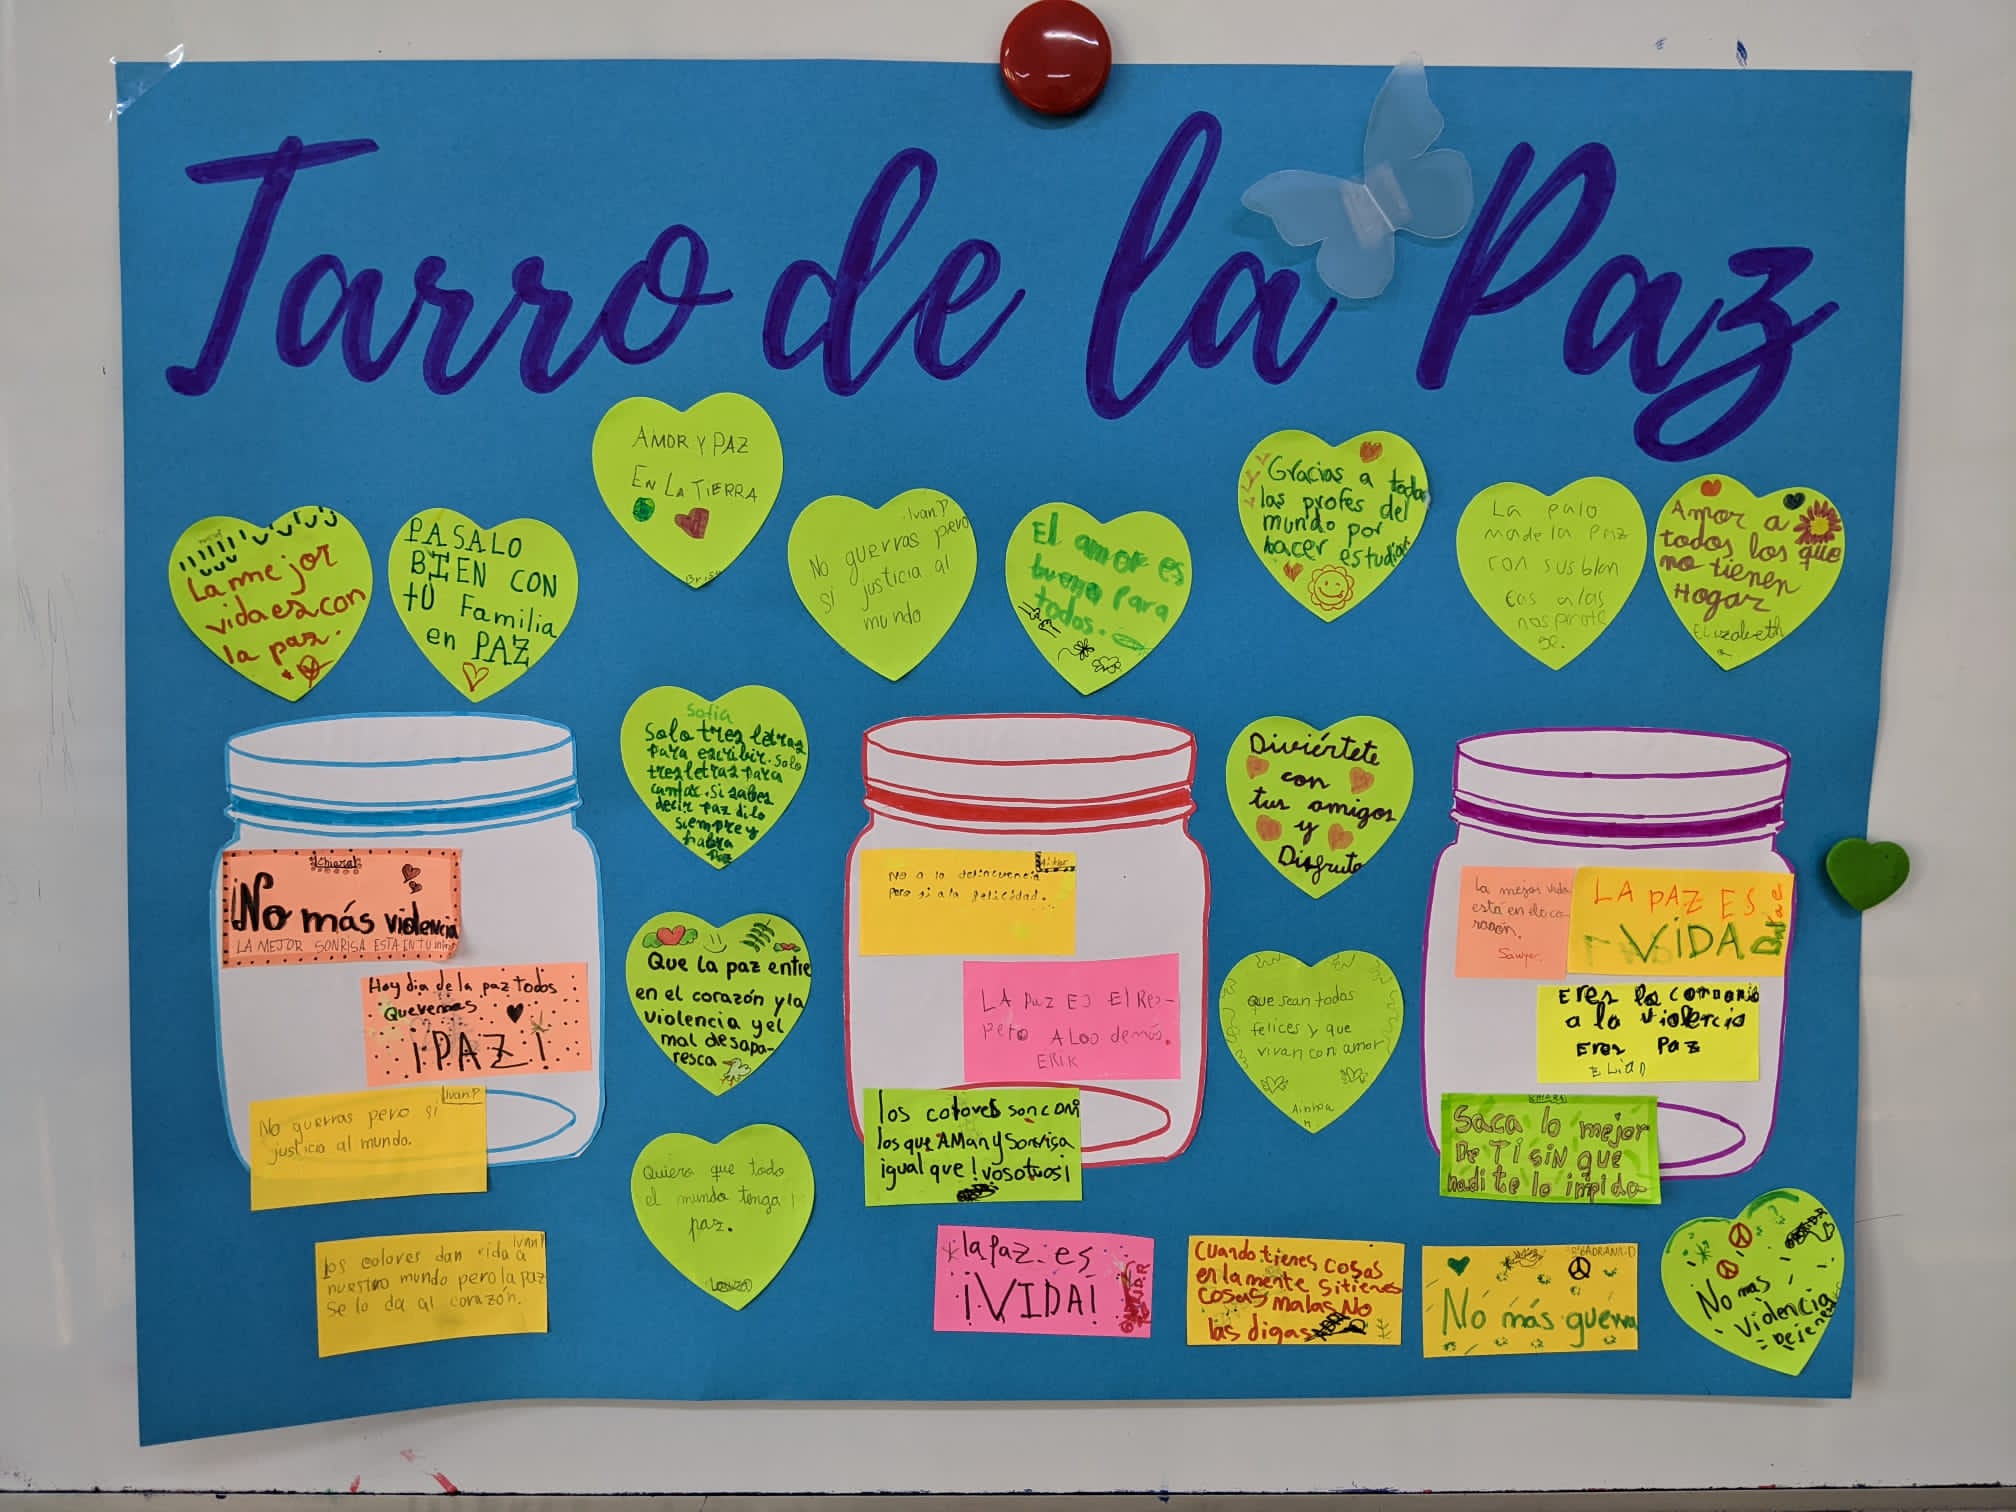 Tarro de la Paz
AMOR Y PAZ
EN LA TIERRA
La mejor
vida es con
la paz.
PASALO
BIEN CON
tU Familia
en PAZ
Ivan P
No guerras pero
si justicia al
mundo
El amor es
bueno para
todos.
Gracias a todas
las profes del
mundo por
hacer estudiar
La palo
ma de la Paz
con sus blan
cas alas
nos prote
ge.
Amor a
todos los que
no tienen
Hogar
Elizabeth
Sofia
Solo tres letras
para escribir. Solo
tres letras para
cantar. Si sabes
decir paz dilo
siempre y
habra
Paz
Diviértete
con
tus amigos
y
Disfruta
Chiara
¡No más violencia
LA MEJOR SONRISA ESTA IN TU
Hoy dia de la paz todos
queremos
¡PAZ!
Ivan P
No guerras pero si
justicia al mundo.
Que la paz entre
en el corazón y la
violencia y el
mal desapa-
resca
No a la delincuencia
pero si a la felicidad.
LA paz ES El Res-
peto A Loo demás.
ERIK
los colores son con
los que AMan y Sonrisa
igual que ! vosotuos¡
que sean todos
felices y que
vivan con amor
Ainhoa
La mejor vida
está en el co-
razón.
Sawyer
LA PAZ ES
VIDA
Eres lo contrario
a la violencia
Eres Paz
ELIAN
Saca lo mejor
De Tí sin que
nadi te lo impida
Quiero que todo
el mundo tenga
paz.
Ivan P
los colores dan vida a
nuestro mundo pero la paz
se lo da al corazón.
la Paz es
¡VIDA!
Cuando tienes cosas
en la mente si tienes
cosas malas No
las digas
ADRAN R.D
No más guerra
No mas
violencia